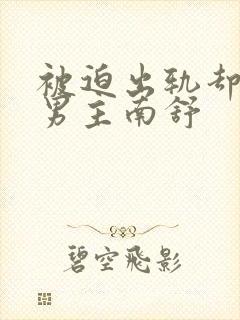 被迫出轨却
男主南舒
碧空飞影